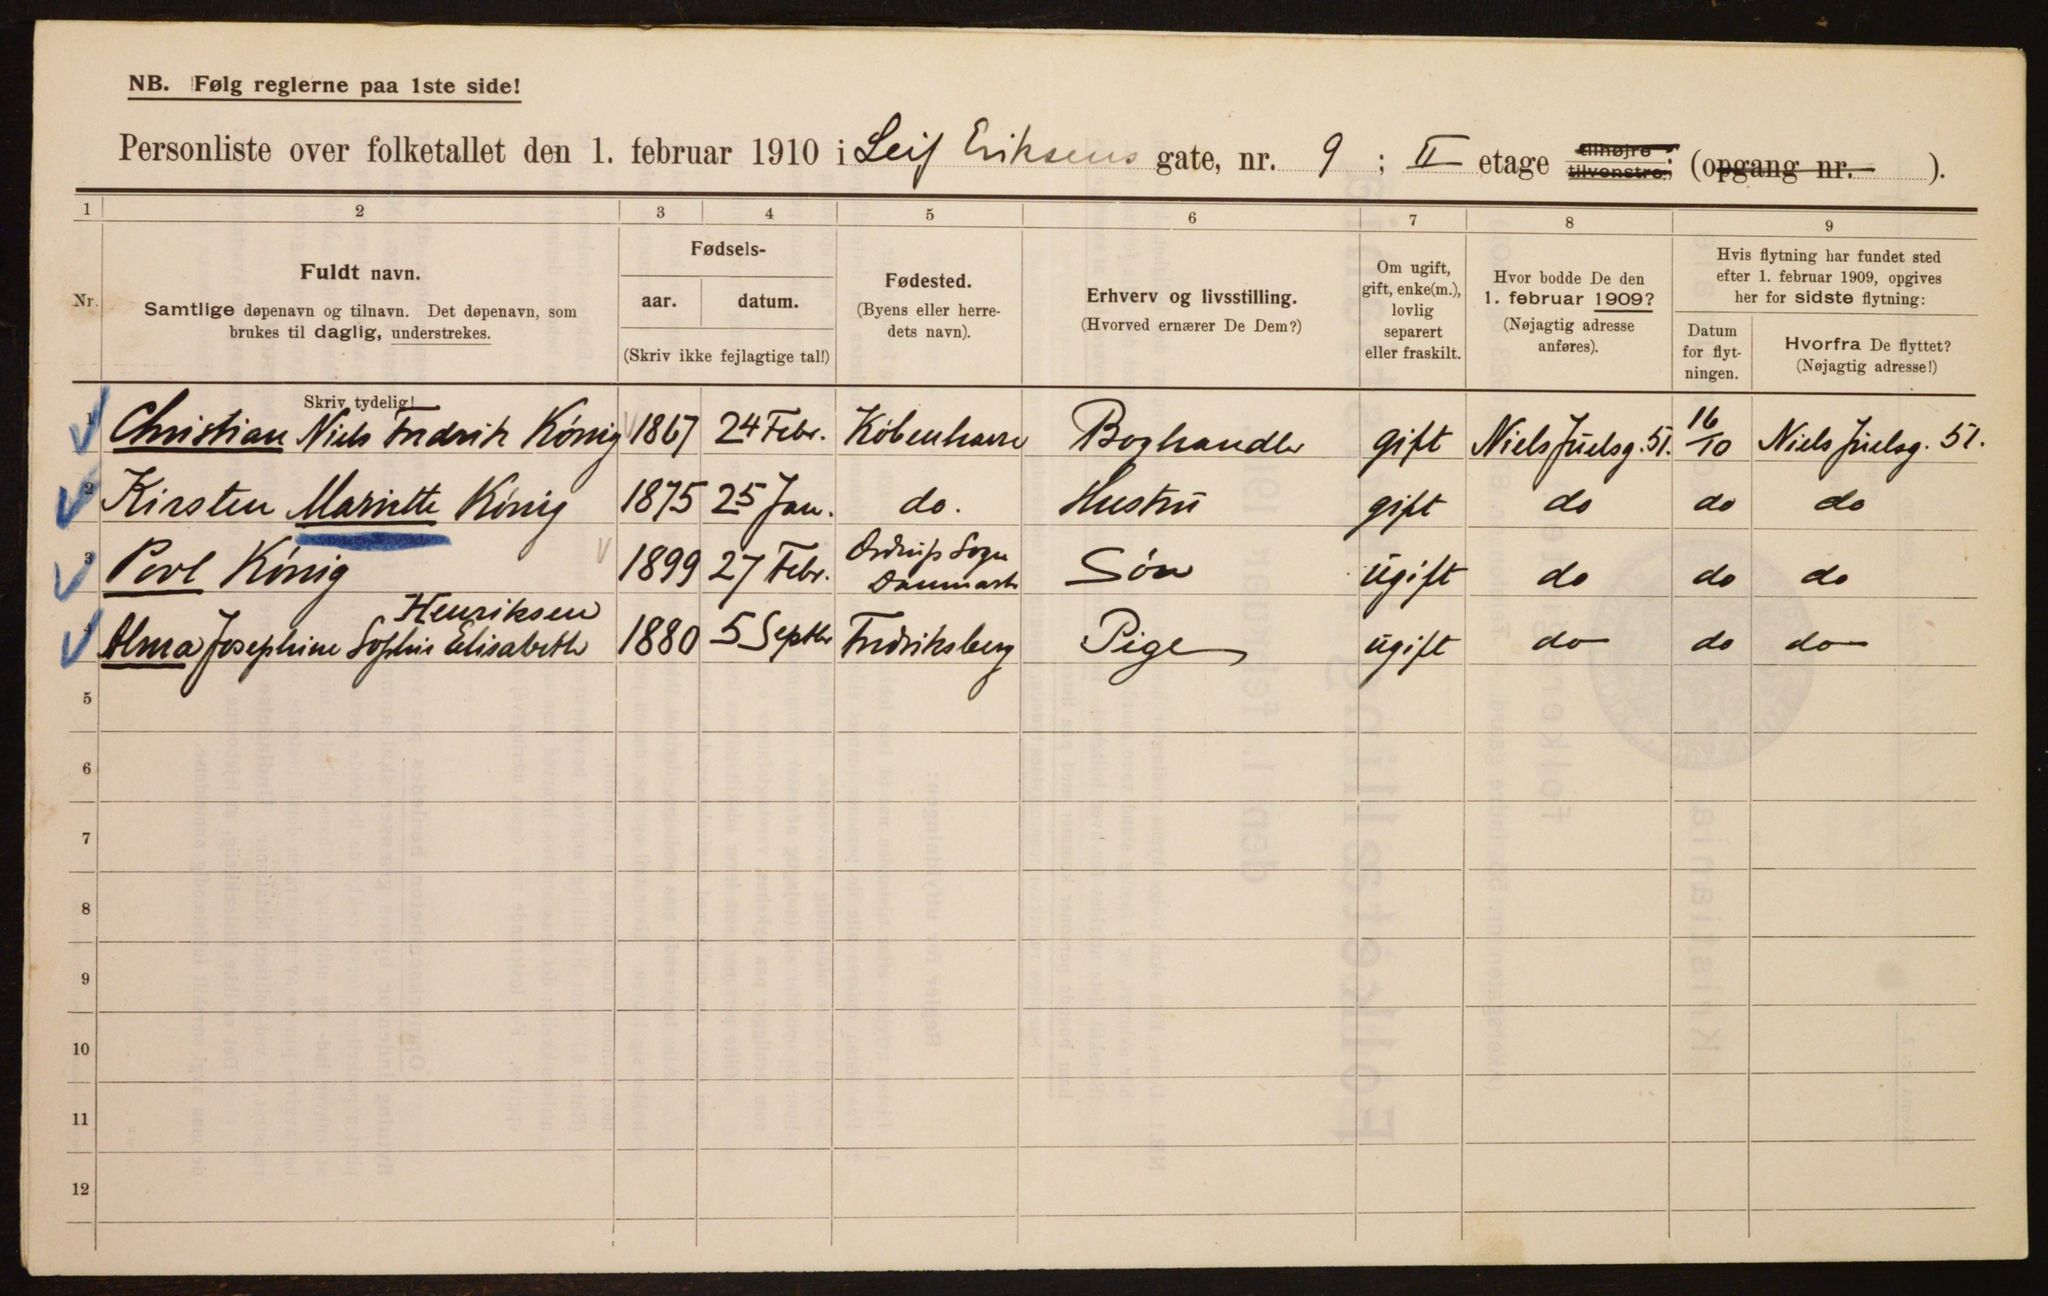 NB. Følg reglerne paa 1ste side!
Personliste over folketallet den 1. februar 1910 i Leif Eriksens gate, nr. 9 ; II etage tilhøjre tilvenstre; (opgang nr. ).
1 2 3 4 5 6 7 8 9
Nr.
Fuldt navn.
Samtlige døpenavn og tilnavn. Det døpenavn, som
brukes til daglig, understrekes.
Fødsels-
aar. datum.
(Skriv ikke fejlagtige tal!)
Fødested.
(Byens eller herre-
dets navn).
Erhverv og livsstilling.
(Hvorved ernærer De Dem?)
Om ugift,
gift, enke(m.),
lovlig
separert
eller fraskilt.
Hvor bodde De den
1. februar 1909?
(Nøjagtig adresse
anføres).
Hvis flytning har fundet sted
efter 1. februar 1909, opgives
her for sidste flytning:
Datum
for flyt-
ningen.
Hvorfra De flyttet?
(Nøjagtig adresse!)
Skriv tydelig!
1 Christian Niels Fredrik König 1867 24 Febr. København Boghandler gift Niels Juelsg. 51. 16/10 Niels Juelsg. 51.
2 Kirsten Mariette König 1875 25 Jan. do. Hustru gift do do do
3 Povl König 1899 27 Febr. Ordrup Sogn Danmark Søn ugift do do do
Henriksen
4 Alma Josephine Sophie Elisabeth 1880 5 Septbr Fredriksberg Pige ugift do do do
5
6
7
8
9
10
11
12